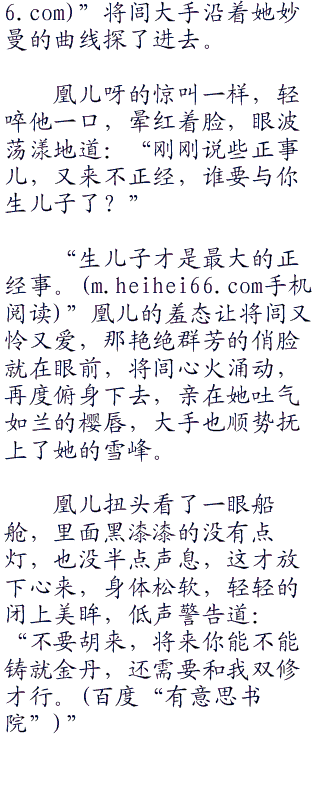 6.com)”将闾大手沿着她妙
曼的曲线探了进去。
凰儿呀的惊叫一样，轻
啐他一口，晕红着脸，眼波
荡漾地道：“刚刚说些正事
儿，又来不正经，谁要与你
生儿子了？”
“生儿子才是最大的正
经事。(m.heihei66.com手机
阅读)”凰儿的羞态让将闾又
怜又爱，那艳绝群芳的俏脸
就在眼前，将闾心火涌动，
再度俯身下去，亲在她吐气
如兰的樱唇，大手也顺势抚
上了她的雪峰。
凰儿扭头看了一眼船
舱，里面黑漆漆的没有点
灯，也没半点声息，这才放
下心来，身体松软，轻轻的
闭上美眸，低声警告道：
“不要胡来，将来你能不能
铸就金丹，还需要和我双修
才行。(百度“有意思书
院”)”